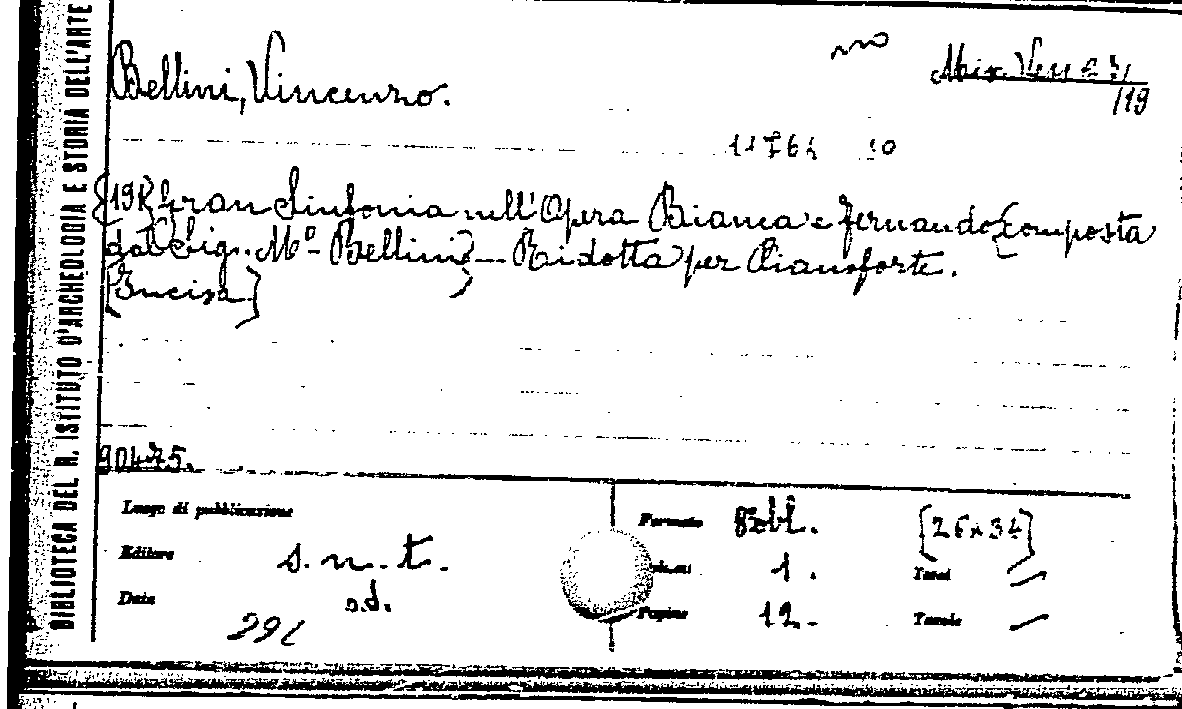 BIBLIOTECA DEL R. ISTITUTO D'ARCHEOLOGIA E STORIA DELL'ARTE
Bellini, Vincenzo.
Mis. Ven
/19
{19} Gran Sinfonia nell'Opera Bianca e Fernando {composta
dal Sig. Mº Bellini} - Ridotta per Pianoforte.
[Incisa]
90475.
Luogo di pubblicazione
Editore s.n.t.
Data s.d.
Formato 8ºobl. [26x34]
Volumi 1. Tomi —
Pagine 12. Tavole —